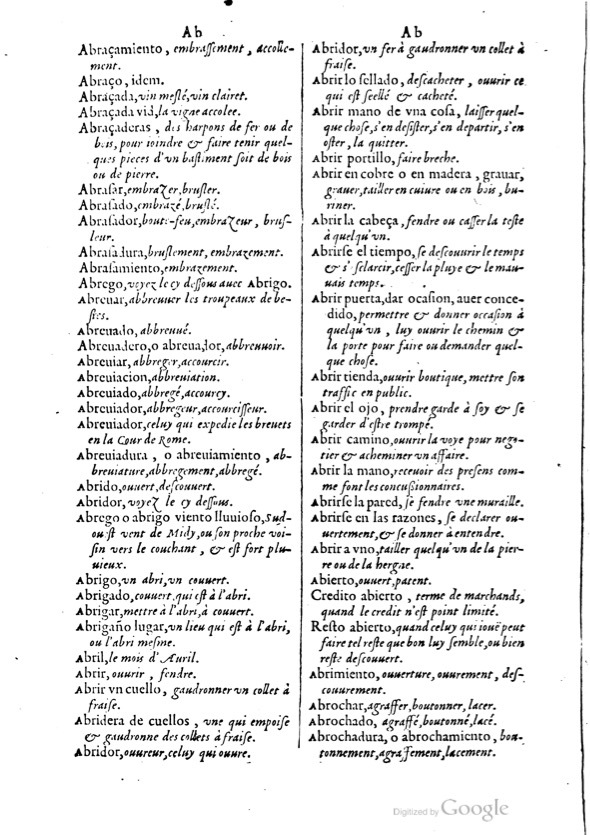 Ab
Abraçamiento, embraſſement, accolle-
ment.
Abraço, idem.
Abraçada, vin meſlé, vin clairet.
Abraçada vid, la vigne accolee.
Abraçaderas, des harpons de fer ou de
bois, pour ioindre & faire tenir quel-
ques pieces d'vn baſtiment ſoit de bois
ou de pierre.
Abraſar, embrazer, bruſler.
Abraſado, embrazé, bruſlé.
Abraſador, boute-feu, embrazeur, bruſ-
leur.
Abraſadura, bruſlement, embrazement.
Abraſamiento, embrazement.
Abrego, voyez le cy deſſous auec Abrigo.
Abreuar, abbreuuer les troupeaux de be-
ſtes.
Abreuado, abbreuué.
Abreuadero, o abreuador, abbreuuoir.
Abreuiar, abbreger, accourcir.
Abreuiacion, abbreuiation.
Abreuiado, abbregé, accourcy.
Abreuiador, abbregeur, accourciſſeur.
Abreuiador, celuy qui expedie les breuets
en la Cour de Rome.
Abreuiadura, o abreuiamiento, ab-
breuiature, abbregement, abbregé.
Abrido, ouuert, deſcouuert.
Abridor, voyez le cy deſſous.
Abrego o abrigo viento lluuioſo, Sud-
ouëſt vent de Midy, ou ſon proche voi-
ſin vers le couchant, & eſt fort plu-
uieux.
Abrigo, vn abri, vn couuert.
Abrigado, couuert, qui eſt à l'abri.
Abrigar, mettre à l'abri, à couuert.
Abrigaño lugar, vn lieu qui eſt à l'abri,
ou l'abri meſme.
Abril, le mois d'Auril.
Abrir, ouurir, fendre.
Abrir vn cuello, gaudronner vn collet à
fraiſe.
Abridera de cuellos, vne qui empoiſe
& gaudronne des collets à fraiſe.
Abridor, ouureur, celuy qui ouure.
Ab
Abridor, vn fer à gaudronner vn collet à
fraiſe.
Abrir lo ſellado, deſcacheter, ouurir ce
qui eſt ſeellé & cacheté.
Abrir mano de vna coſa, laiſſer quel-
que choſe, s'en deſiſter, s'en departir, s'en
oſter, la quitter.
Abrir portillo, faire breche.
Abrir en cobre o en madera, grauar,
grauer, tailler en cuiure ou en bois, bu-
riner.
Abrir la cabeça, fendre ou caſſer la teſte
à quelqu'vn.
Abrirſe el tiempo, ſe deſcouurir le temps
& s'eſclarcir, ceſſer la pluye & le mau-
uais temps.
Abrir puerta, dar ocaſion, auer conce-
dido, permettre & donner occaſion à
quelqu'vn, luy ouurir le chemin &
la porte pour faire ou demander quel-
que choſe.
Abrir tienda, ouurir boutique, mettre ſon
traffic en public.
Abrir el ojo, prendre garde à ſoy & ſe
garder d'eſtre trompé.
Abrir camino, ouurir la voye pour nego-
tier & acheminer vn affaire.
Abrir la mano, receuoir des preſens com-
me font les concuſſionnaires.
Abrirſe la pared, ſe fendre vne muraille.
Abrirſe en las razones, ſe declarer ou-
uertement, & ſe donner à entendre.
Abrir a vno, tailler quelqu'vn de la pier-
re ou de la hergne.
Abierto, ouuert, patent.
Credito abierto, terme de marchands,
quand le credit n'eſt point limité.
Reſto abierto, quand celuy qui iouë peut
faire tel reſte que bon luy ſemble, ou bien
reſte deſcouuert.
Abrimiento, ouuerture, ouurement, deſ-
couurement.
Abrochar, agraffer, boutonner, lacer.
Abrochado, agraffé, boutonné, lacé.
Abrochadura, o abrochamiento, bou-
tonnement, agraffement, lacement.
Digitized by Google